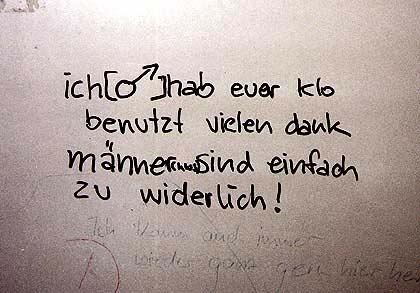 ich[♂]hab euer klo
benutzt vielen dank
männer sind einfach
zu widerlich!
Ich kann auch immer
wieder ganz gern hier